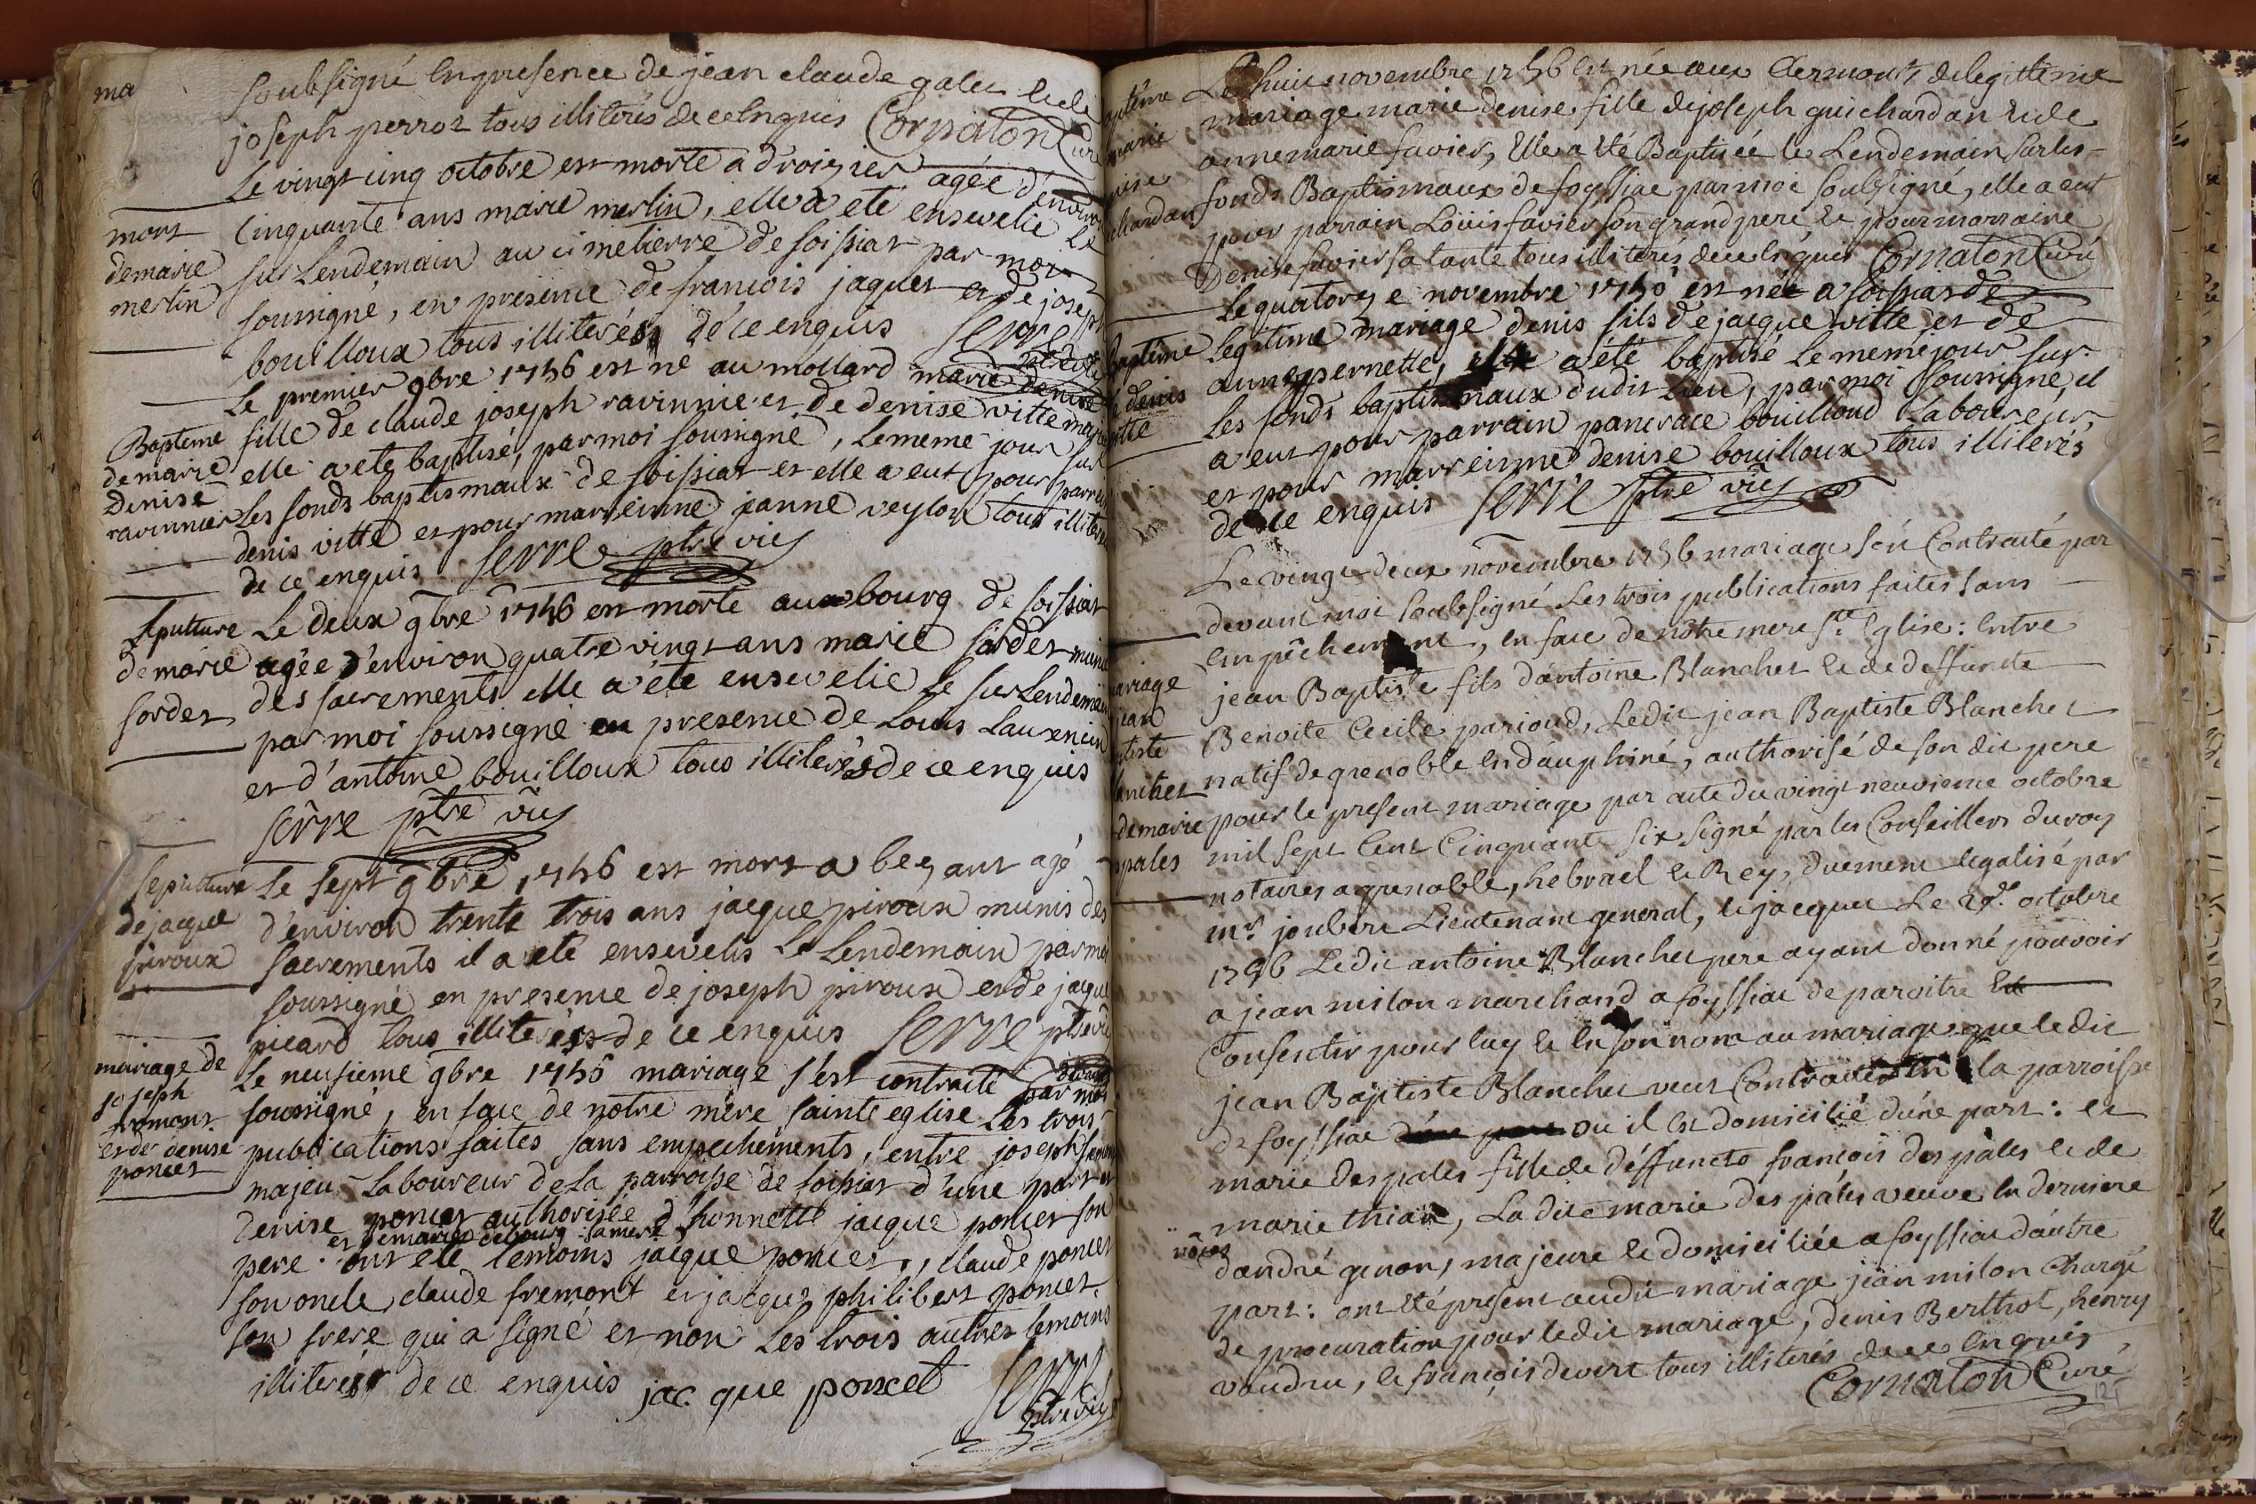 ma
soubsigné en presence de jean claude galet et de
joseph perrot tous illiterés de ce enquis Cornaton Curé
mort
demarie
merlin
Le vingt cinq octobre est morte a droisies agée d'environ
Cinquante ans marie merlin, elle a eté ensevelie le
sur Lendemain au cimetierre de soissiat par moi
soussigné, en presence de francois jaquet et de joseph
bouilloux tous illiterés de ce enquis Serre
Bapteme
demarie
Denise
ravinnier
Le premier 9bre 1756 est né au mollard marie denise
fille de claude joseph ravinnier et de denise vitte
elle a eté baptisé, par moi soussigné, le meme jour sur
les fonds baptismaux de soissiat et elle a eut pour
denis vitte et pour marreinne janne veylon tous
de ce enquis Serre ptre vic
Sepulture
de marie
sordet
Le deux 9bre 1756 est morte au bourg de soissiat
agée d'environ quatre vingt ans marie sordet
des sacrements elle a été ensevelie le sur Lendemain
par moi soussigné en presence de Louis Laurencin
et d'antoine bouilloux tous illiterés de ce enquis
Serre ptre vic
sepulture
de jacque
piroux
Le sept 9bre, 1756 est mort a bezant agé
d'environ trente trois ans jacque piroux munis des
sacrements il a eté ensevelis le Lendemain par moi
soussigné en presence de joseph piroux et de jacque
picard tous illiterés de ce enquis Serre ptre vic
mariage de
joseph
fromont
et de denise
poncet
Le neufieme 9bre 1756 mariage s'est contracté devant
par moi
soussigné, en face de notre mère sainte eglise les trois
publications faites sans empechements, entre joseph
majeur Laboureur de la parroisse de soissiat d'une part et
denise poncet authorisée d'honnette jacque poncet son
et demarie sa mere
pere ont eté temoins jacque poncet, claude poncet
son oncle, claude fremont et jacque philibert poncet
son frere qui a signé et non les trois autres temoins
illiterés de ce enquis jac. que poncet Serre
ptre vic
marie
Le huit novembre 1756 est née aux Clermonts de legittime
mariage marie denise fille de joseph guichardan et de
anne marie favier, Elle a été Baptisée le Lendemain sur les
fonds Baptismaux de foyssiac par moi soubsigné, elle a eut
pour parrain Louis favier son grand pere, et pour marraine
Denise favier sa tante tous illiterés de ce enquis Cornaton Curé
Bapteme
de denis
vitte
Le quatorze novembre 1756 est né a soissiat de
legitime mariage denis fils de jacque vitte et de
anne pernette, il a été baptisé le meme jour sur
les fonds baptismaux dudit Lieu, par moi soussigné, il
a eut pour parrain pancrace bouilloud Laboureur
et pour marreinne denise bouilloux tous illiterés
de ce enquis Serre ptre vic
mariage
jean
Blanchet
de marie
Le vingt-deux novembre 1756 mariage s'est Contracté par
devant moi soubsigné Les trois publications faites sans
empêchement, en face de nôtre mere Ste Eglise: Entre
jean Baptiste fils d'antoine Blanchet et de deffuncte
Benoite Cecile parioud, Ledit jean Baptiste Blanchet
natif de grenoble en dauphiné, authorisé de son dit pere
pour le present mariage par acte du vingt neuvieme octobre
mil sept Cent Cinquante six signé par les Conseillers du roy
notaires a grenoble, hebrael et Rey, duement legalisé par
mr. joubert Lieutenant general, et jacquet Le octobre
1756 Ledit antoine Blanchet pere ayant donné pouvoir
a jean milon marchand a foyssiac de paroitre et
Consentir pour luy et en son nom au mariage que ledit
jean Baptiste Blanchet veut Contracter en la parroisse
de foyssiac ou il est domicilié d'une part: et
marie des pales fille de deffuncts francois des pales et de
marie thian, La dite marie des pales veuve en derniere
nôces
d'andré genon, majeure et domiciliée a foyssiac d'autre
part: ont été present audit mariage jean milon Chargé
de procuration pour ledit mariage, denis Berthot, henry
voudru, et françois devert tous illiterés de ce Enquis
Cornaton Curé